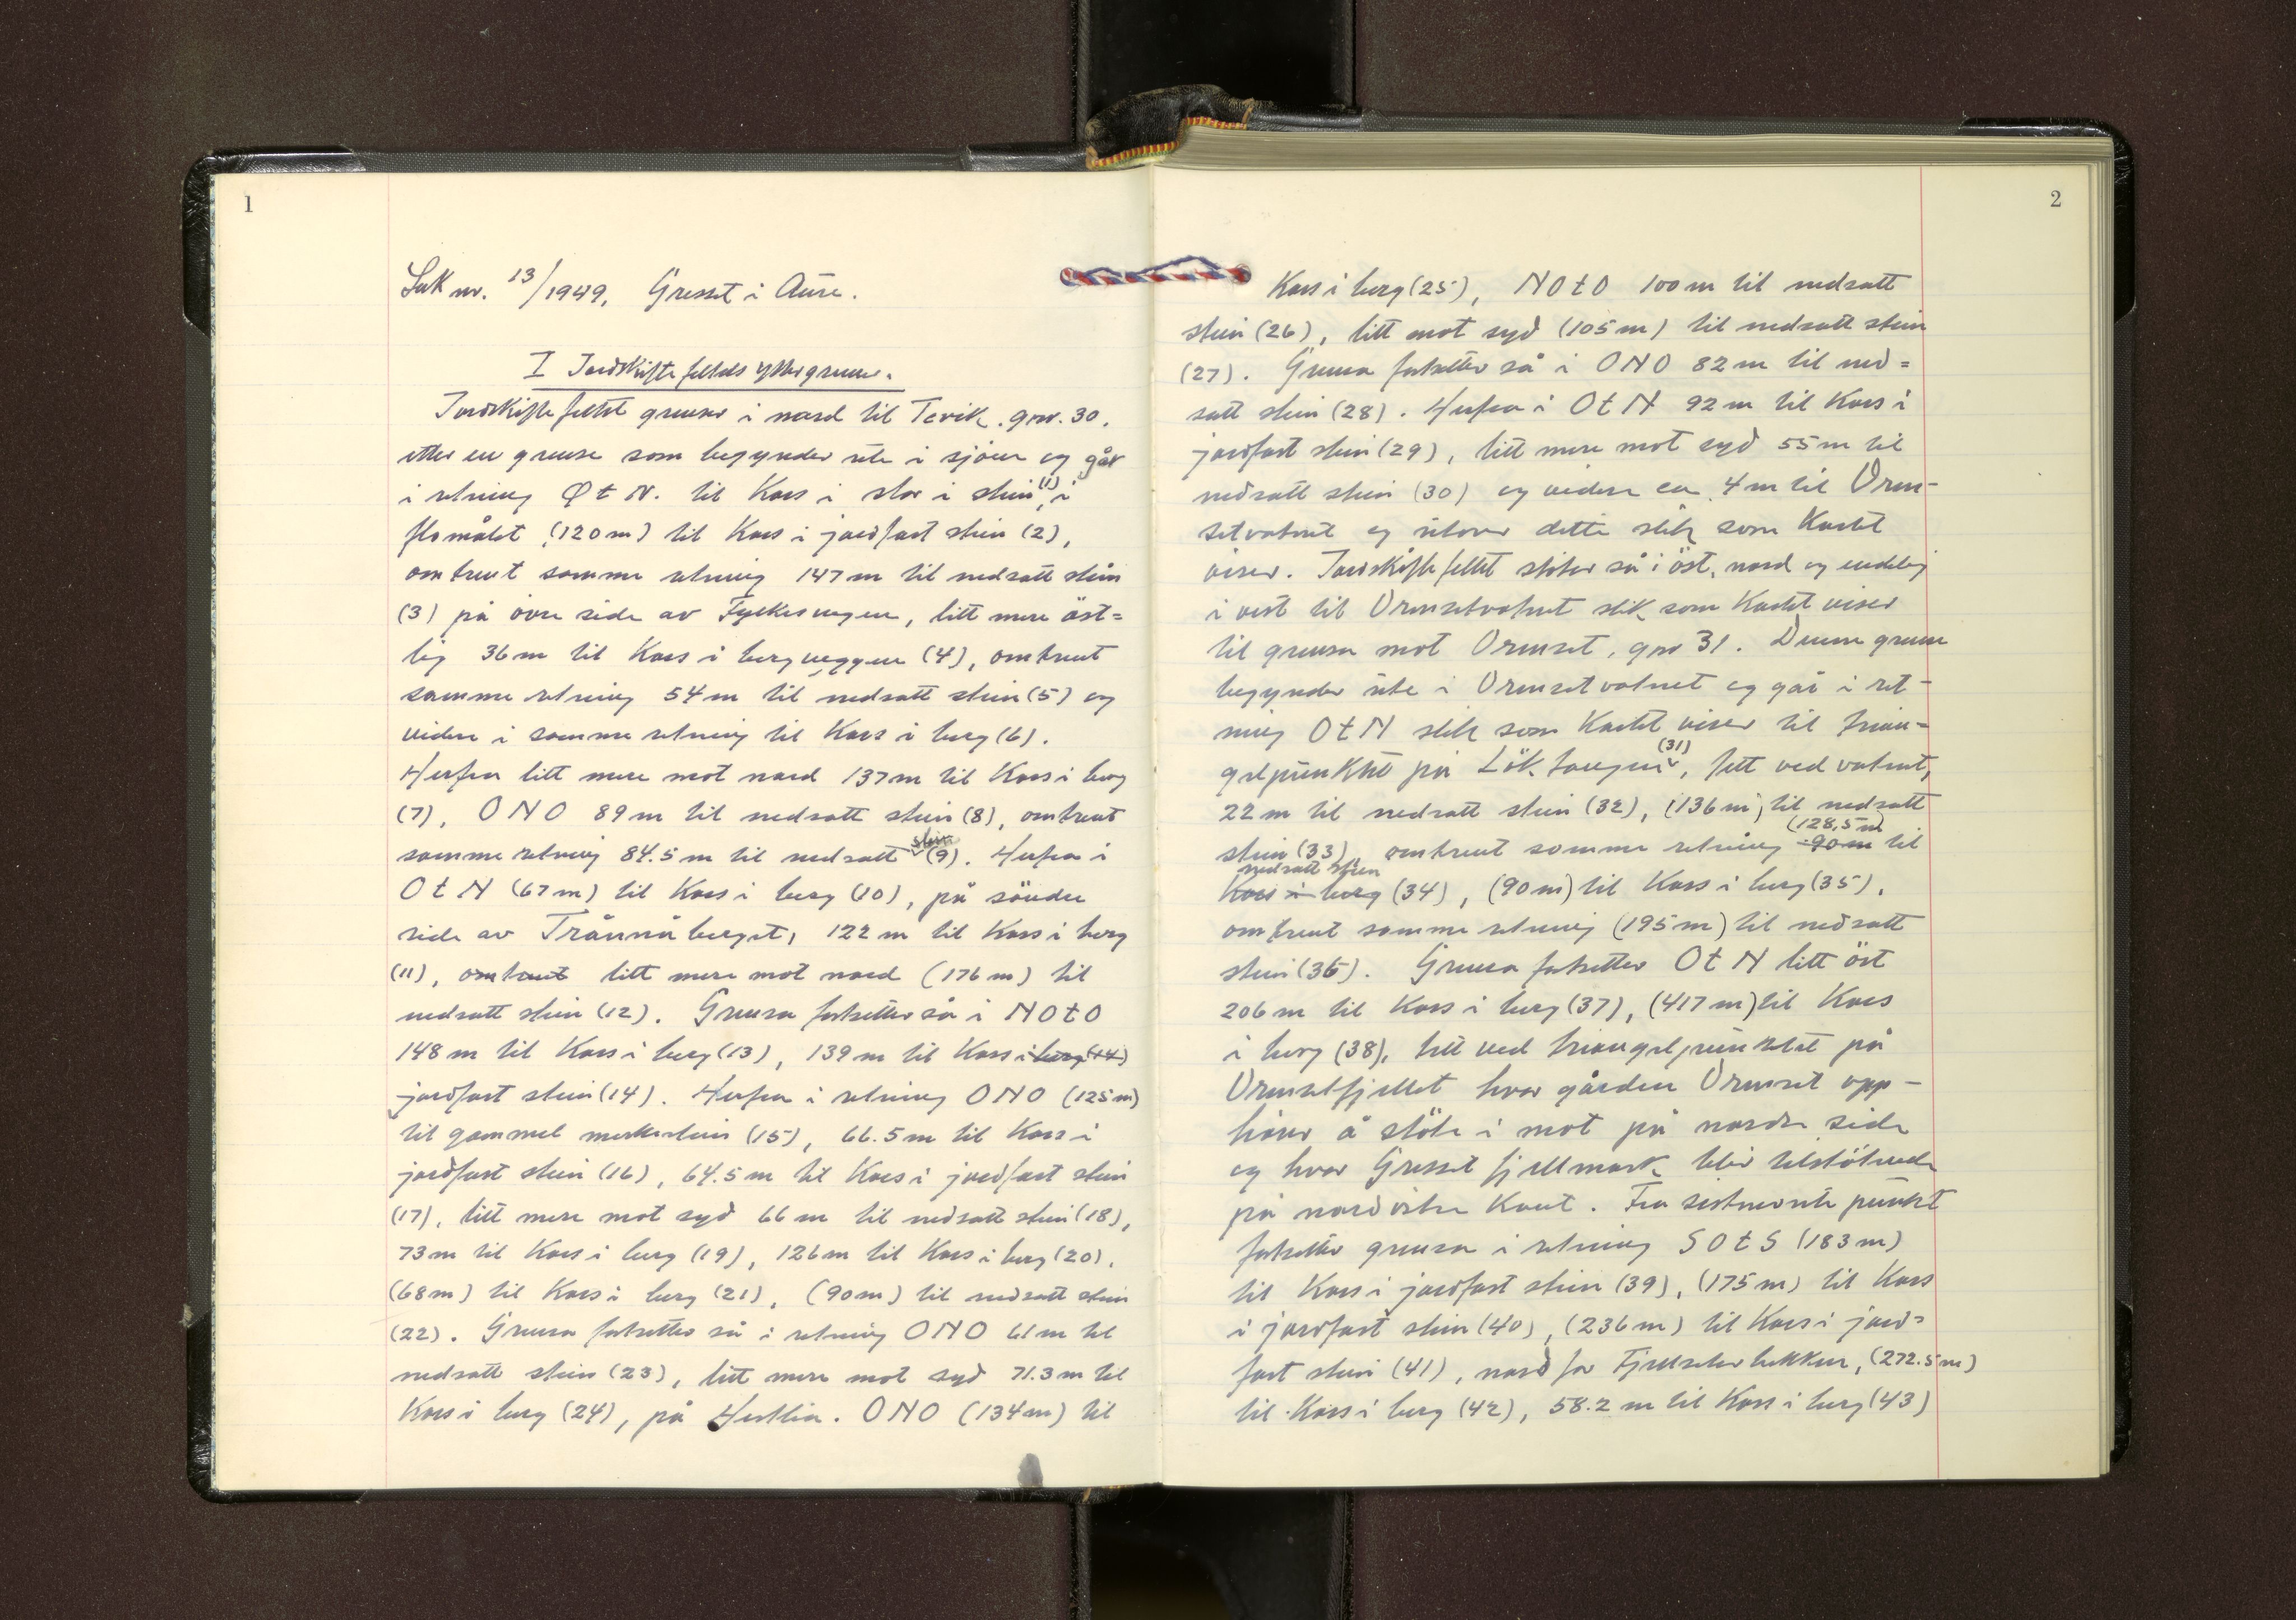 1
Sak nr. 13/1949, Gresset i Aure.
I Jordskiftefeltets yttergrenser.
Jordskiftefeltet grenser i nord til Tevik. gnr. 30.
etter en grense som begynder ute i sjøen og går
i retning Ø t N. til Kors i stor i stein (1), i
flomålet (120 m) til Kors i jordfast stein (2),
omtrent samme retning 147 m til nedsatt stein
(3) på övre side av Fylkesvegen, litt mere öst=
lig 36 m til Kors i bergveggen (4), omtrent
samme retning 54 m til nedsatt stein (5) og
videre i samme retning til Kors i berg (6).
Herfra litt mere mot nord 137 m til Kors i berg
(7), ONO 89 m til nedsatt stein (8), omtrent
samme retning 84.5 m til nedsatt stein (9). Herfra i
O t N (67 m) til Kors i berg (10), på söndre
side av Trånnåberget, 122 m til Kors i berg
(11), omtrent litt mere mot nord (176 m) til
nedsatt stein (12). Grensa fortsetter så i NO t O
148 m til Kors i berg (13), 139 m til Kors i berg (14)
jordfast stein (14). Herfra i retning ONO (125 m)
til gammel merkestein (15), 66.5 m til Kors i
jordfast stein (16), 64.5 m til Kors i jordfast stein
(17), litt mere mot syd 66 m til nedsatt stein (18),
73 m til Kors i berg (19), 126 m til Kors i berg (20),
(68 m) til Kors i berg (21), (90 m) til nedsatt stein
(22). Grensa fortsetter så i retning ONO 61 m til
nedsatt stein (23), litt mere mot syd 71.3 m til
Kors i berg (24), på Hestlia. ONO (134 m) til
2
Kors i berg (25), NO t O 100 m til nedsatt
stein (26), litt mot syd (105 m) til nedsatt stein
(27). Grensa fortsetter så i ONO 82 m til ned=
satt stein (28). Herfra i O t N 92 m til Kors i
jordfast stein (29), litt mere mot syd 55 m til
nedsatt stein (30) og videre ca. 4 m til Orm-
setvatnet og utover dette slik som Kartet
viser. Jordskiftefeltet støter så i öst, nord og endelig
i vest til Ormsetvatnet slik som Kartet viser
til grensa mot Ormset, gnr 31. Denne grense
begynder ute i Ormsetvatnet og går i ret-
ning O t N slik som Kartet viser til trian-
gelpunktet på Löktangen (31), tett ved vatnet,
22 m til nedsatt stein (32), (136 m) til nedsatt
stein (33), omtrent samme retning 90 m (128,5 m) til
Kors i berg nedsatt stein (34), (90 m) til Kors i berg (35),
omtrent samme retning (195 m) til nedsatt
stein (36). Grensa fortsetter O t N litt öst
206 m til Kors i berg (37), (417 m) til Kors
i berg (38), tett ved triangelpunktet på
Ormsetfjellet hvor gården Ormset opp-
hører å støte i mot på nordre side
og hvor Gresset fjellmark blir tilstötende
på nordöstre Kant. Fra sistnevnte punkt
fortsetter grensa i retning SO t S (183 m)
til Kors i jordfast stein (39), (175 m) til Kors
i jordfast stein (40), (236 m) til Kors i jord=
fast stein (41), nord for Fjellseterbekken, (272.5 m)
til Kors i berg (42), 58.2 m til Kors i berg (43)